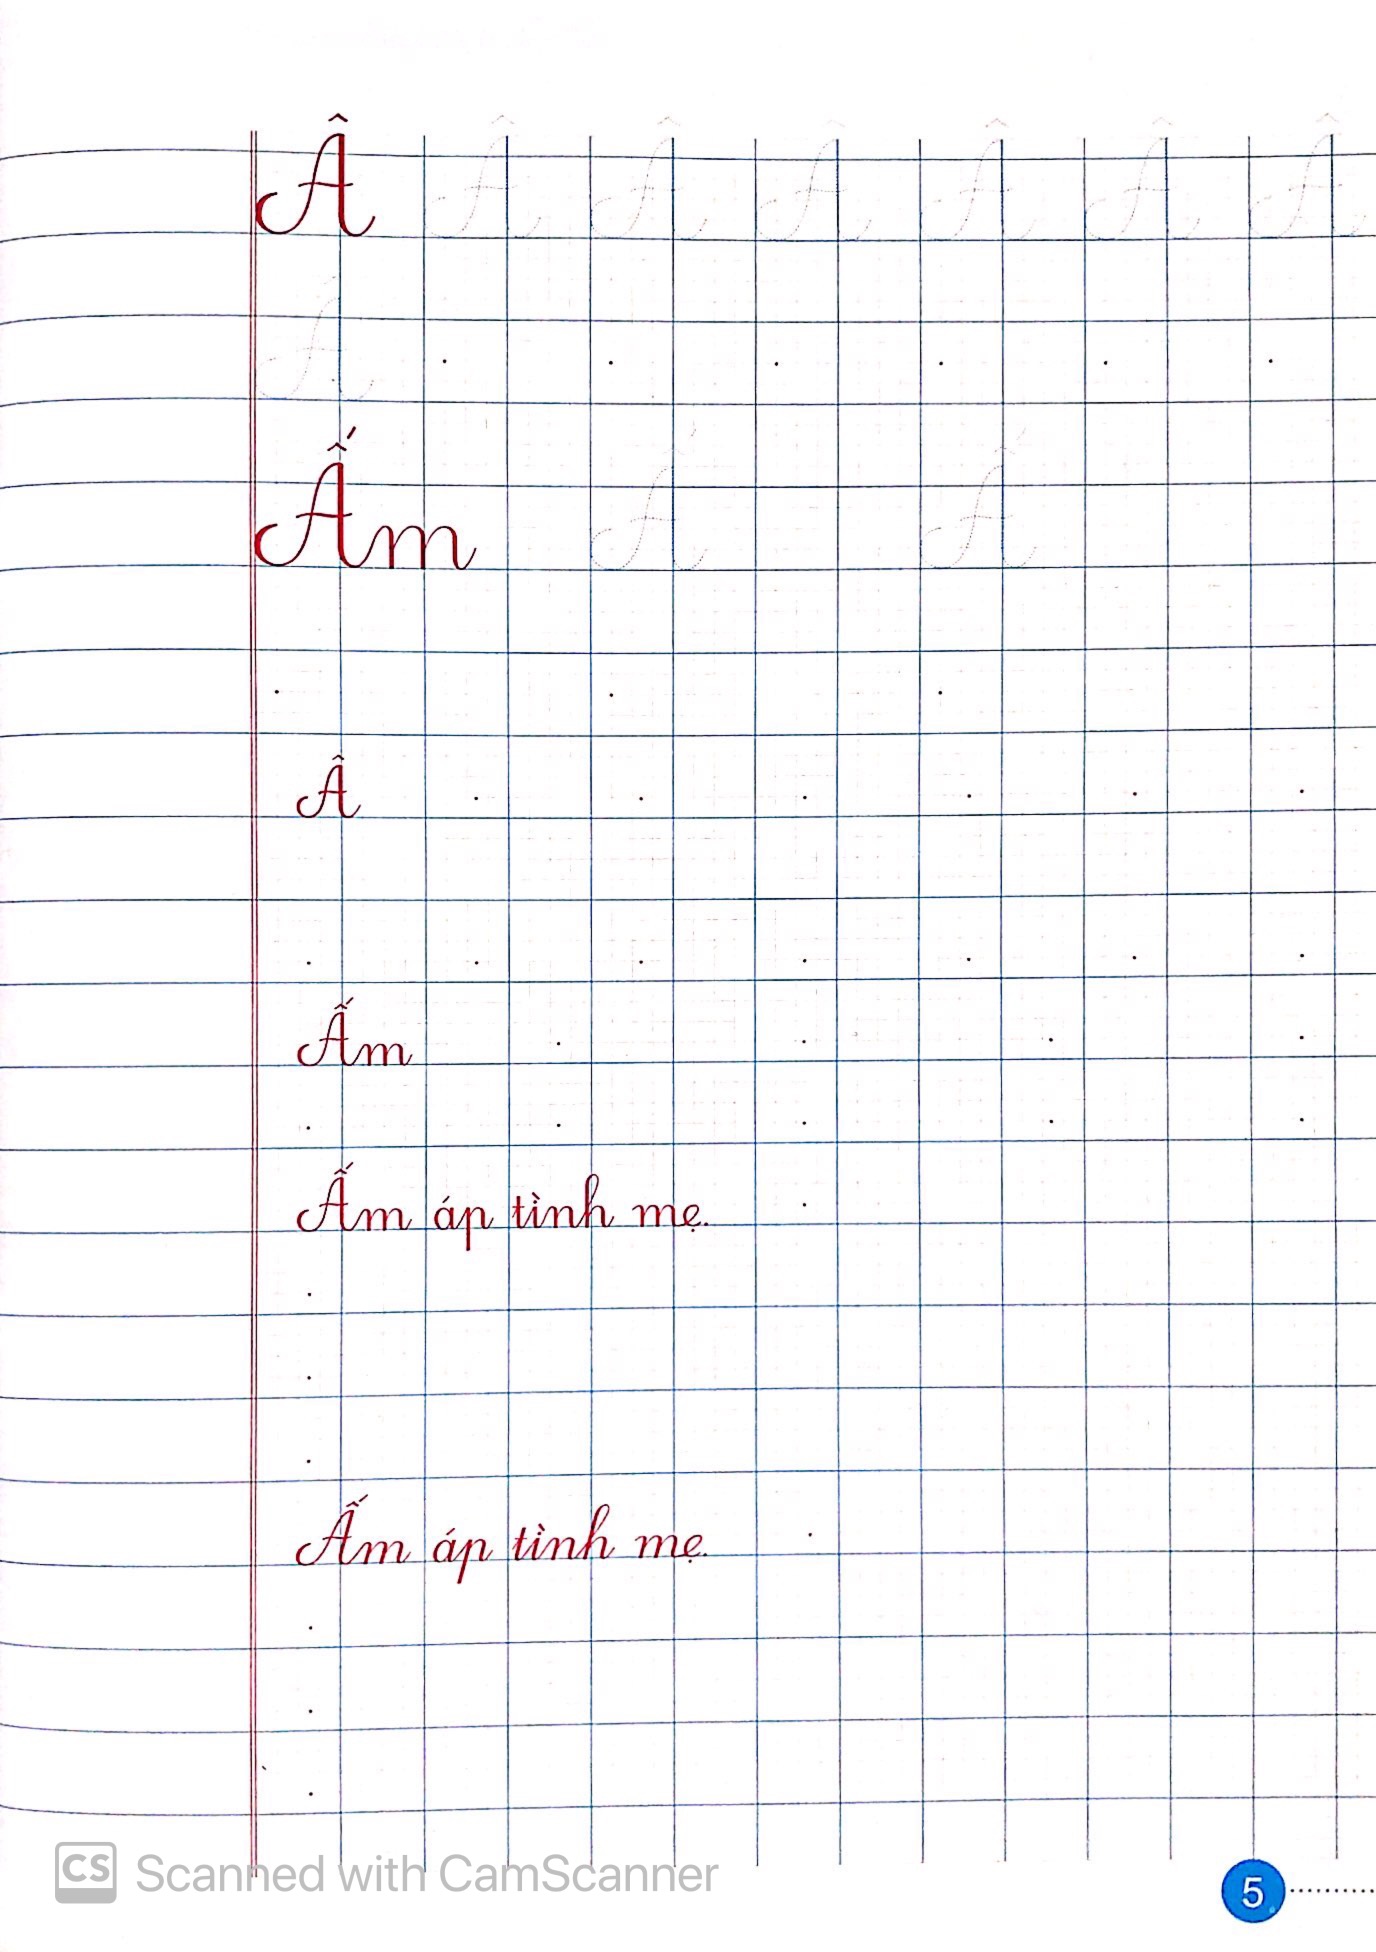 Â Â Â Â Â Â Â
Â
Ấm Ấ Ấ
Â
Ấm
Ấm áp tình mẹ.
Ấm áp tình mẹ.
CS Scanned with CamScanner
5